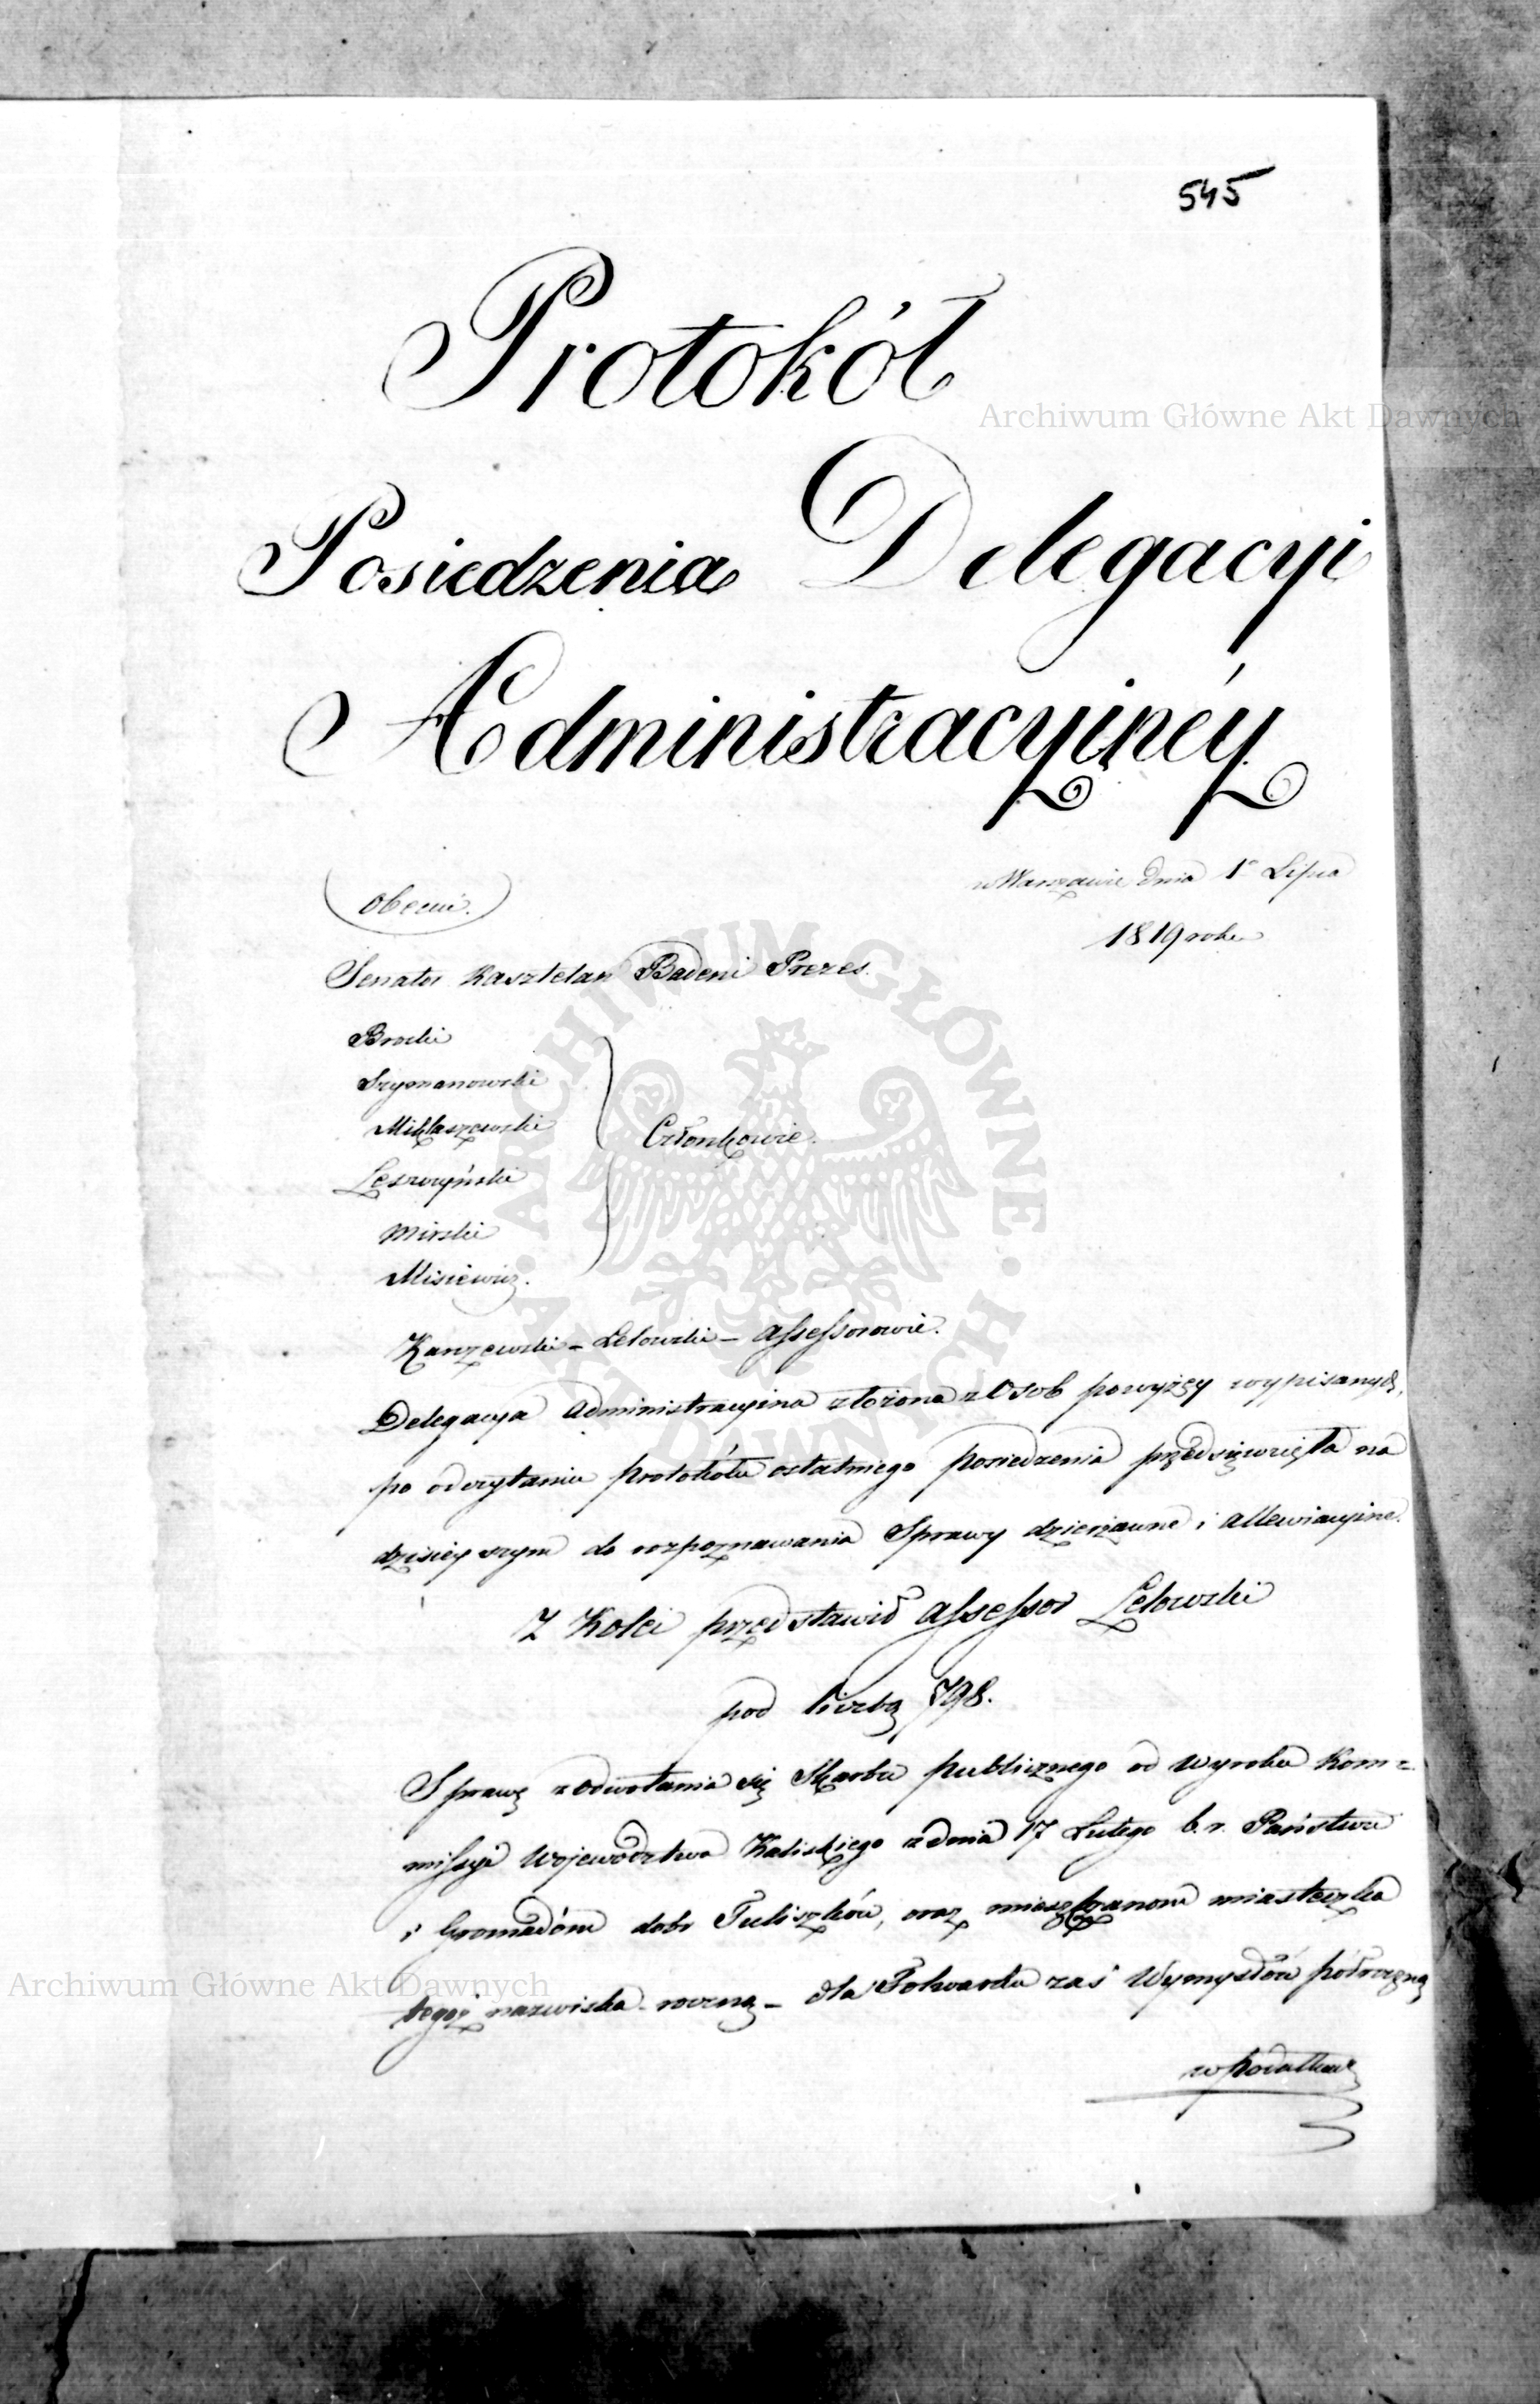 545
Protokół
Posiedzenia Delegacyi
Administracyinéy
w Warszawie dnia 1º Lipca
1819 roku
Obecni.
Senator Kasztelan Badeni Prezes.
Brocki
Szymanowski
Miklaszewski
Leszczyński
Mirski
Misiewicz.
Członkowie.
Karczewski - Lelowski - Assessorowie.
Delegacya Administracyina złożona z Osob powyżey wypisanych,
po odczytaniu protokółu ostatniego posiedzenia przedsięwzięła na
dzisieyszym do rozpoznawania Sprawy dzierżawne i allewiacyine.
Z Kolei przedstawił Assessor Lelowski
pod liczbą 798.
Sprawę z odwołania się Skarbu publicznego od Wyroku Kom=
missyi Województwa Kaliskiego z dnia 17 Lutego b. r. Państwu
i Gromadóm dobr Tuliszków, oraz mieszkanom miasteczka
tegoż nazwiska roczną - dla Folwarku zaś Wymysłów półroczną
w podatkach
Archiwum Główne Akt Dawnych
Archiwum Główne Akt Dawnych
ARCHIWUM GŁÓWNE AKT DAWNYCH